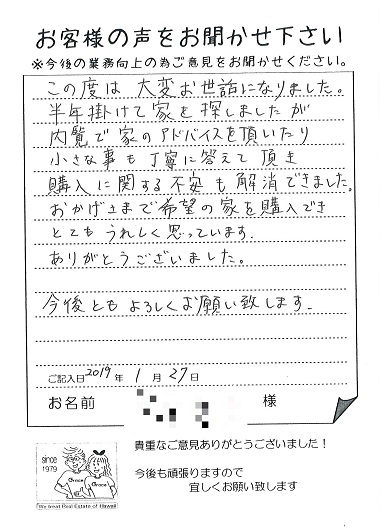 お客様の声をお聞かせ下さい
※今後の業務向上の為ご意見をお聞かせください。
この度は大変お世話になりました。
半年掛けて家を探しましたが
内覧で家のアドバイスを頂いたり
小さな事も丁寧に答えて頂き
購入に関する不安も解消できました。
おかげさまで希望の家を購入でき
とてもうれしく思っています.
ありがとうございました。
今後ともよろしくお願い致します.
ご記入日2019年 1月27日
お名前 様
since
1979
Grace
Grace
We treat Real Estate of Hawaii
貴重なご意見ありがとうございました！
今後も頑張りますので
宜しくお願い致します